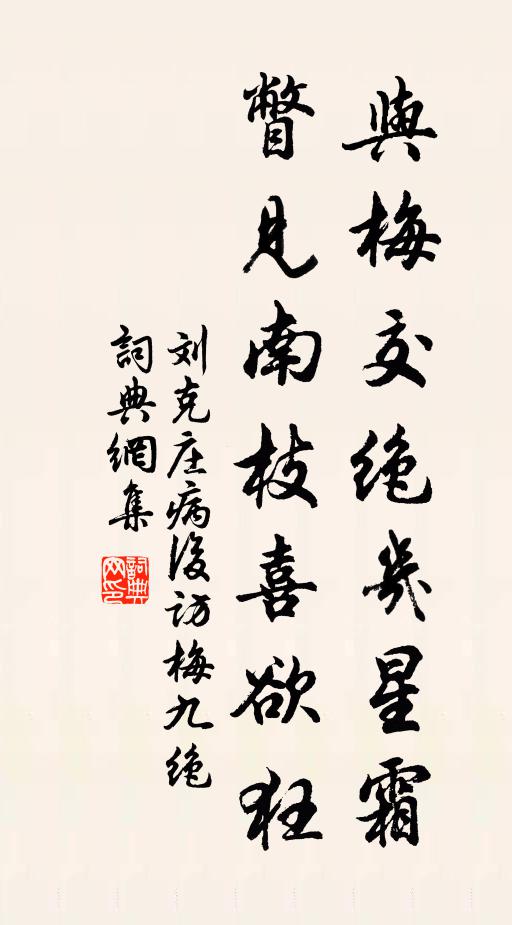 與梅交绝幾星霜
瞥見南枝喜欲狂
刘克庄病後访梅九绝
詞典網集
詞典网印